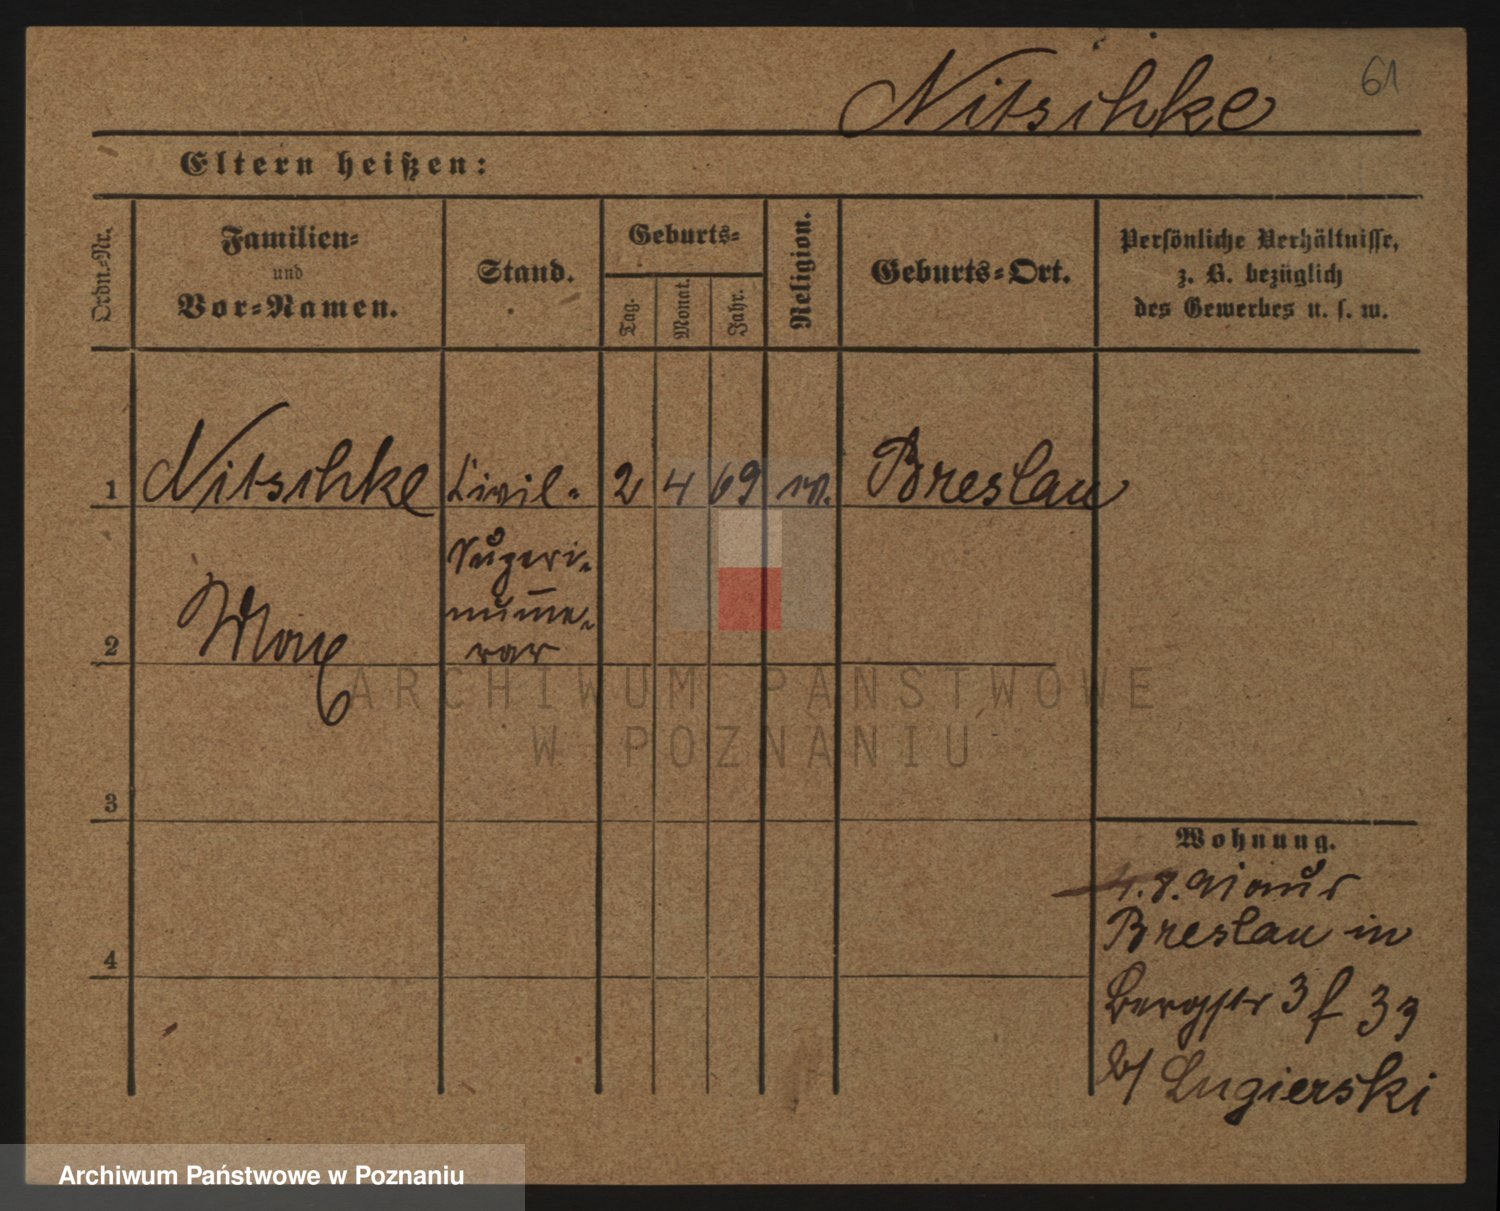 61
Nitschke
Eltern heißen:
Ordn.-Nr.
Familien-
und
Vor-Namen.
Stand.
Geburts-
Tag.
Monat.
Jahr.
Religion.
Geburts-Ort.
Persönliche Verhältnisse,
z. B. bezüglich
des Gewerbes u. s. w.
1
Nitschke
Civil-
2 4 69
Breslau
Superi-
nume-
rar
2
Max
ARCHIWUM PAŃSTWOWE
W POZNANIU
3
Wohnung.
4. 8. 91 aus
Breslau in
4
Bergstr 3 f 39
b/ Lugierski
Archiwum Państwowe w Poznaniu